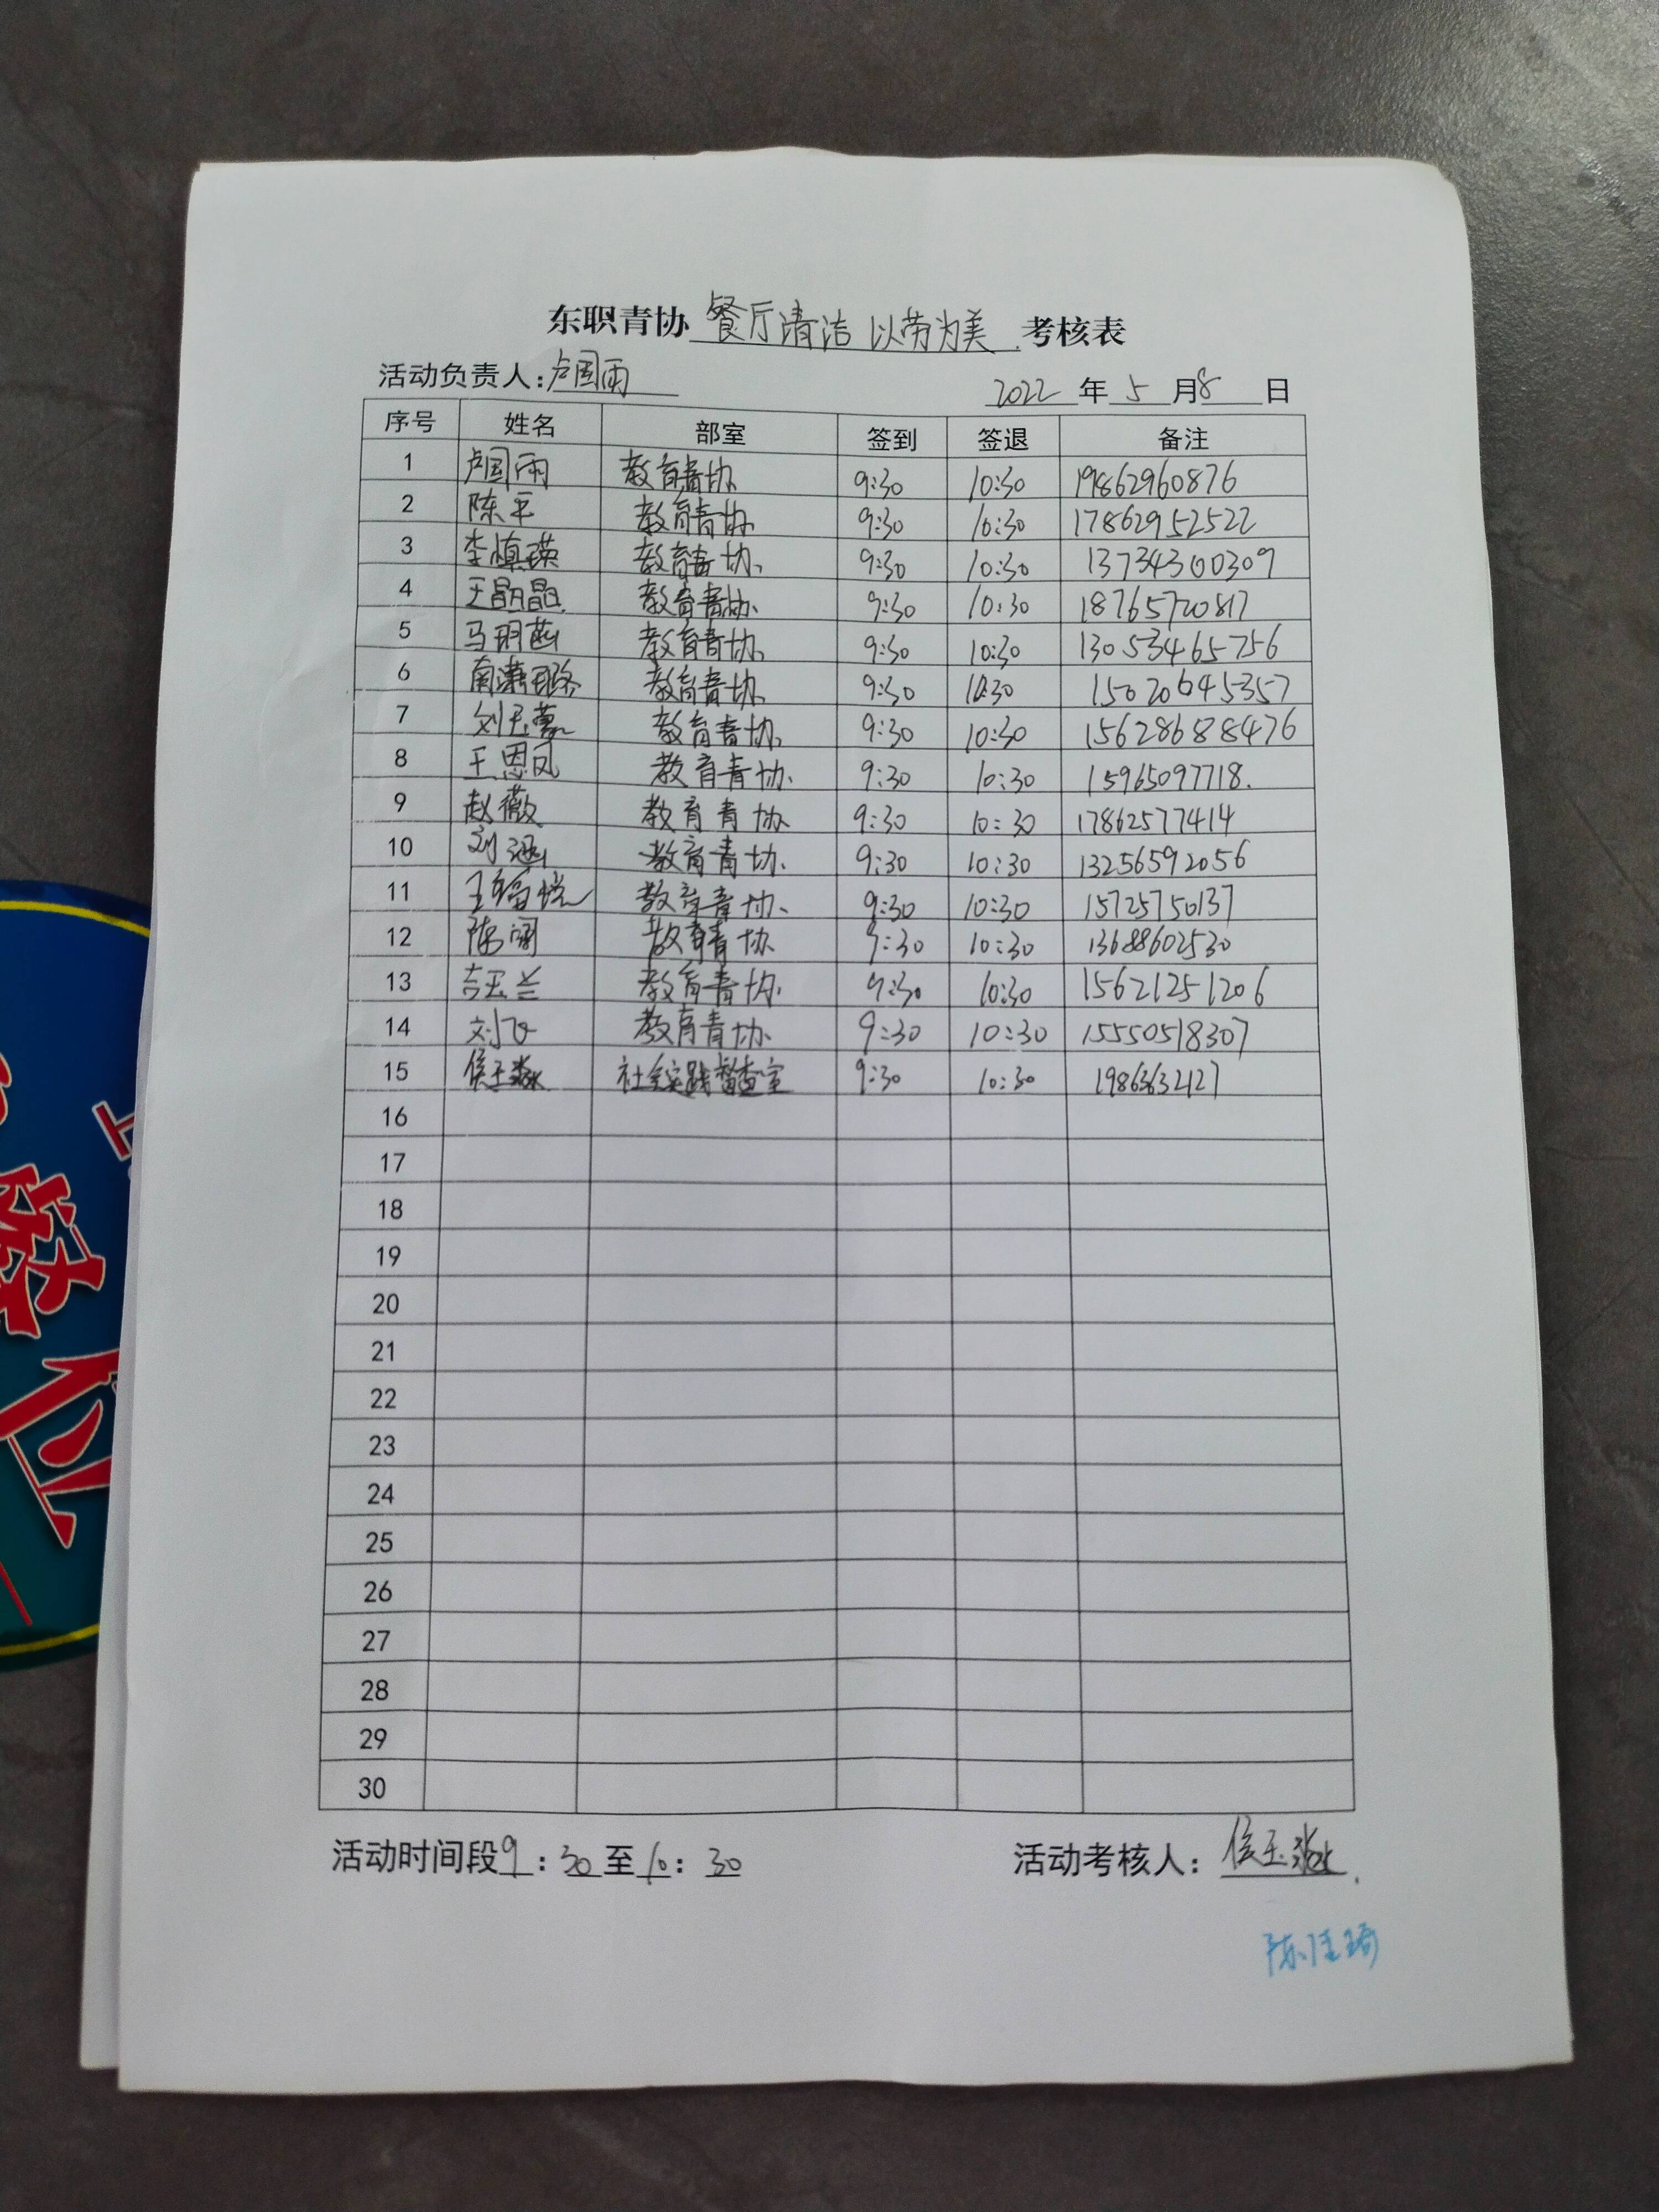 东职青协 餐厅清洁 以劳为美 考核表
活动负责人：卢国雨 2022 年 5 月 8 日
序号 姓名 部室 签到 签退 备注
1 卢国雨 教育青协 9:30 10:30 19862960876
2 陈平 教育青协 9:30 10:30 17862952522
3 李慎瑛 教育青协 9:30 10:30 13734300309
4 王晶晶 教育青协 9:30 10:30 18765720817
5 马玥菡 教育青协 9:30 10:30 13053465756
6 教育青协 9:30 10:30 15020645357
7 刘玉蒙 教育青协 9:30 10:30 15628688476
8 王恩凤 教育青协 9:30 10:30 15965097718
9 赵薇 教育青协 9:30 10:30 17862577414
10 刘涵 教育青协 9:30 10:30 13256592056
11 教育青协 9:30 10:30 15725750137
12 教育青协 9:30 10:30 13688602530
13 吉玉兰 教育青协 9:30 10:30 15621251206
14 刘飞 教育青协 9:30 10:30 15550518307
15 侯玉淼 社会实践督查室 9:30 10:30 19863632127
16
17
18
19
20
21
22
23
24
25
26
27
28
29
30
活动时间段 9:30 至 10:30 活动考核人：侯玉淼
陈佳琦
位